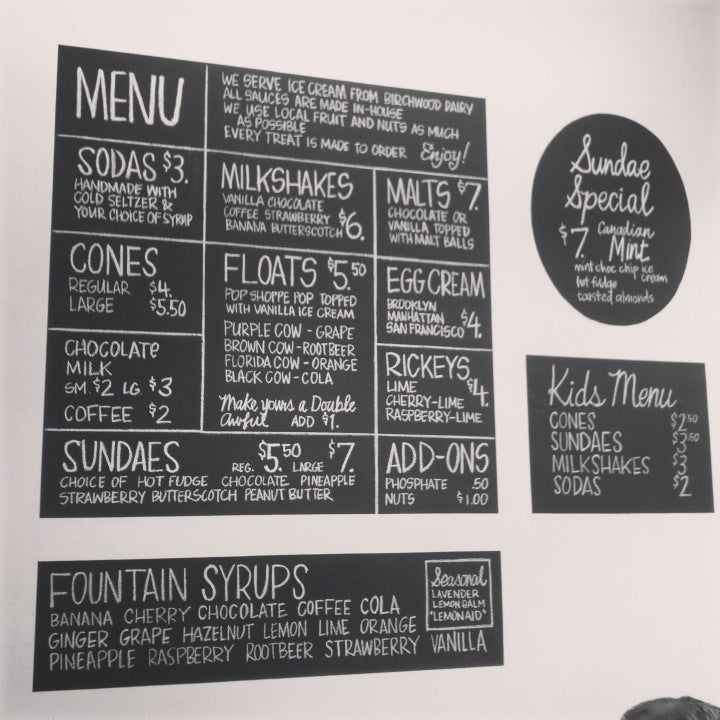 MENU
WE SERVE ICE CREAM FROM BIRCHWOOD DAIRY
ALL SAUCES ARE MADE IN-HOUSE
WE USE LOCAL FRUIT AND NUTS AS MUCH
AS POSSIBLE
EVERY TREAT IS MADE TO ORDER Enjoy!
SODAS $3.
HANDMADE WITH
COLD SELTZER &
YOUR CHOICE OF SYRUP
CONES
REGULAR $4.
LARGE $5.50
CHOCOLATE
MILK
SM. $2 LG. $3
COFFEE $2
MILKSHAKES
VANILLA CHOCOLATE
COFFEE STRAWBERRY
BANANA BUTTERSCOTCH $6.
FLOATS $5.50
POP SHOPPE POP TOPPED
WITH VANILLA ICE CREAM
PURPLE COW - GRAPE
BROWN COW - ROOTBEER
FLORIDA COW - ORANGE
BLACK COW - COLA
Make yours a Double
Awful ADD $1.
MALTS $7.
CHOCOLATE OR
VANILLA TOPPED
WITH MALT BALLS
EGG CREAM
BROOKLYN
MANHATTAN
SAN FRANCISCO $4.
RICKEYS
LIME $4.
CHERRY-LIME
RASPBERRY-LIME
SUNDAES REG. $5.50 LARGE $7.
CHOICE OF HOT FUDGE CHOCOLATE PINEAPPLE
STRAWBERRY BUTTERSCOTCH PEANUT BUTTER
ADD-ONS
PHOSPHATE .50
NUTS $1.00
Sundae
Special
$7. Canadian
Mint
mint choc chip ice
cream
hot fudge
toasted almonds
Kids Menu
CONES $2.50
SUNDAES $3.50
MILKSHAKES $3
SODAS $2
FOUNTAIN SYRUPS
BANANA CHERRY CHOCOLATE COFFEE COLA
GINGER GRAPE HAZELNUT LEMON LIME ORANGE
PINEAPPLE RASPBERRY ROOTBEER STRAWBERRY VANILLA
Seasonal
LAVENDER
LEMON BALM
"LEMONAID"